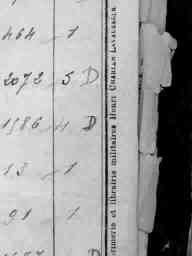 464 _ 1
2072 _ 5 D
1586 _ 4 D
13 _ 1
91 _ 1
D
imerie et librairie militaires HENRI CHARLES-LAVAUZELLE